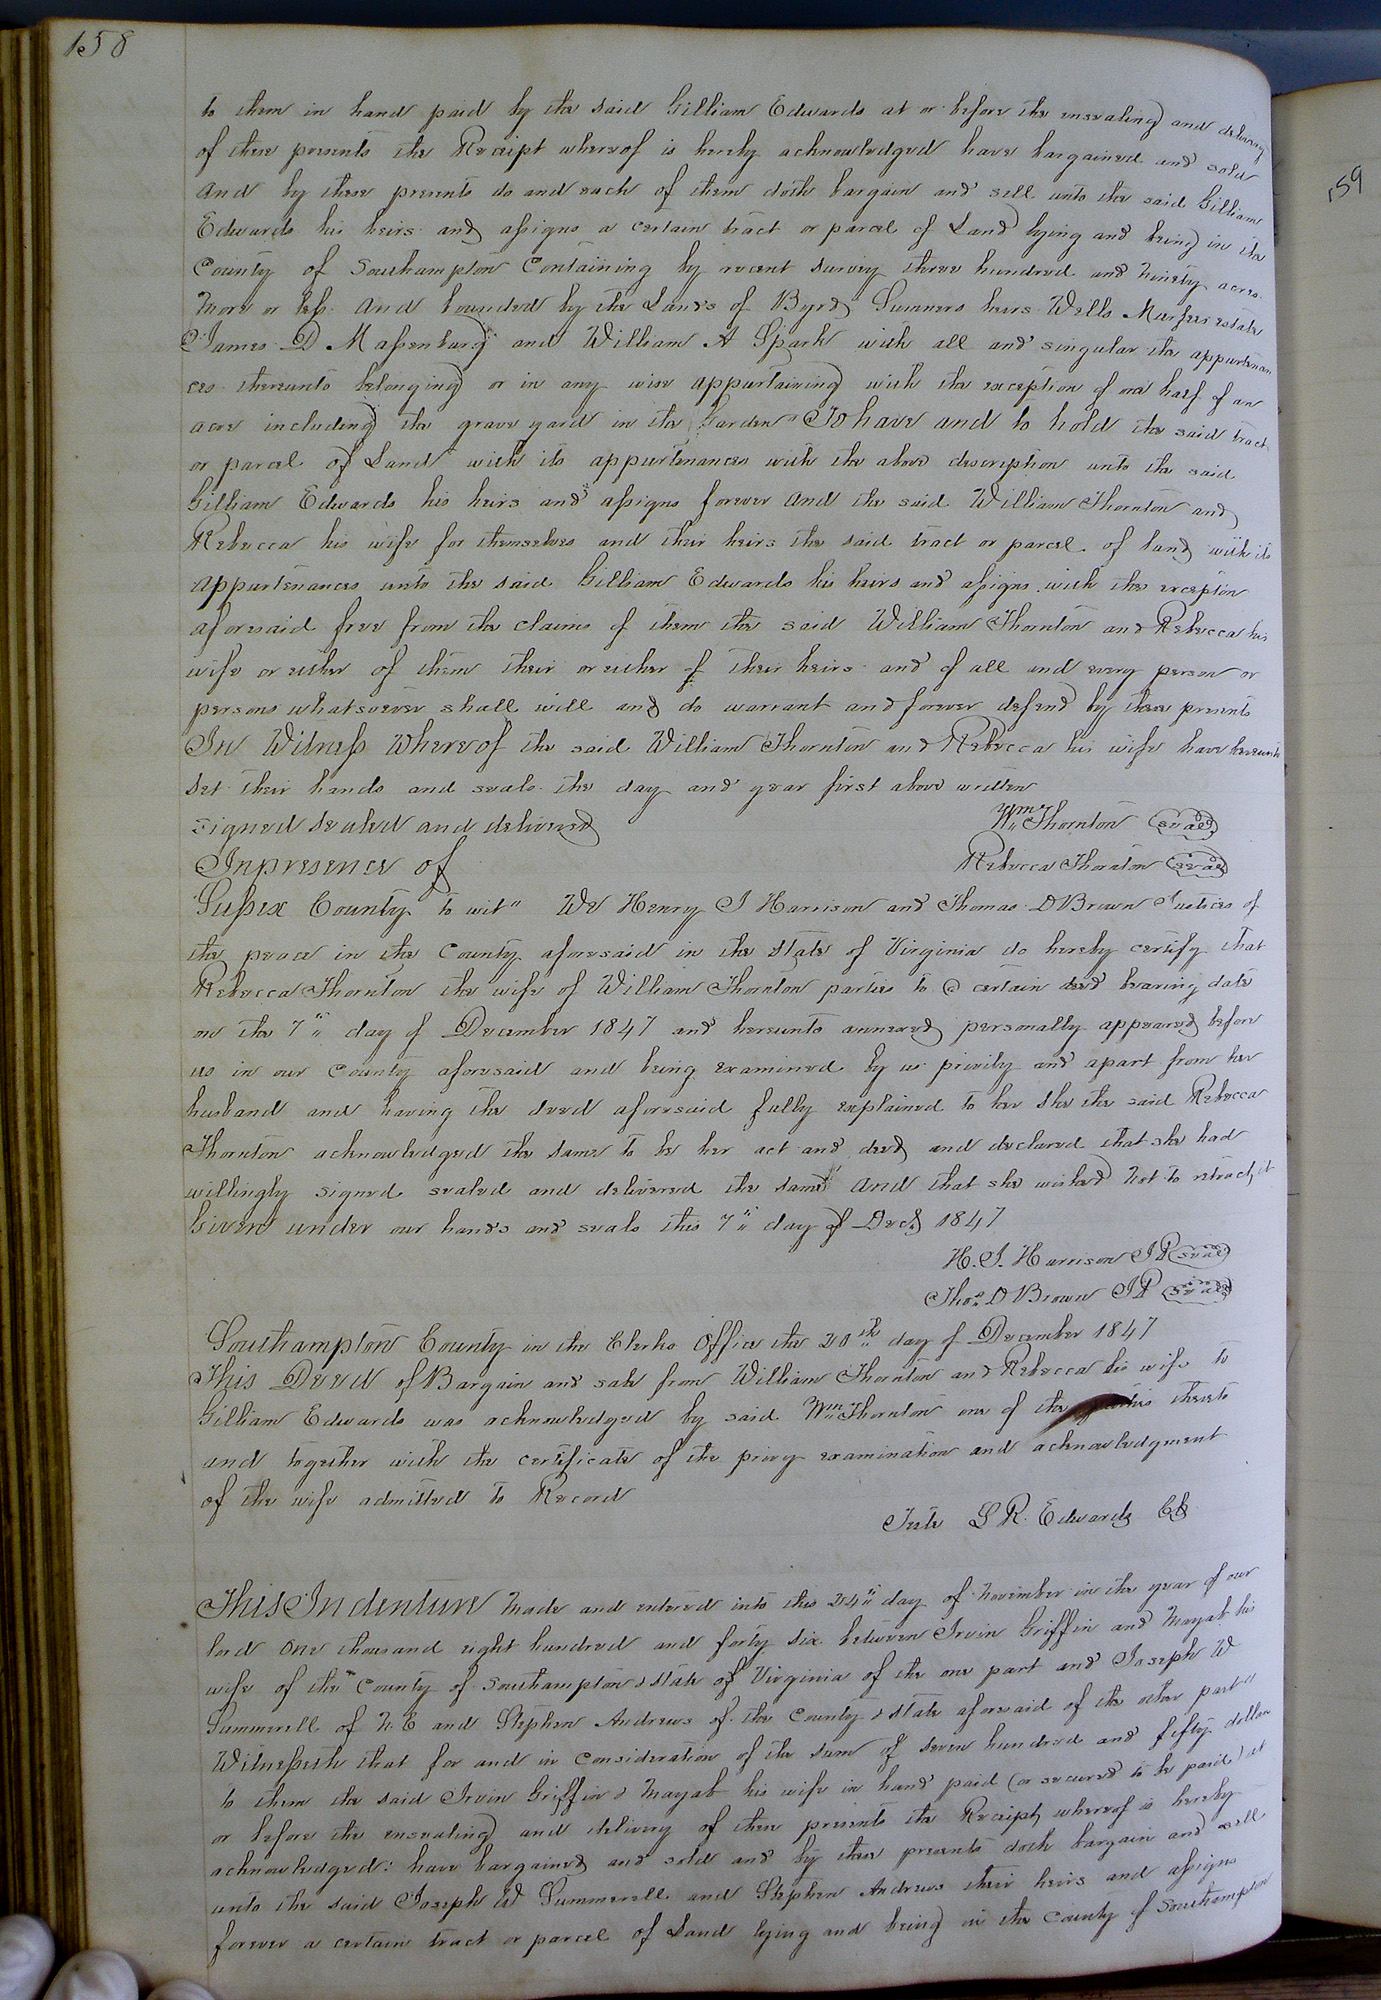 158
to them in hand paid by the said Gilliam Edwards at or before the ensealing and delivery
of these presents the Receipt whereof is hereby acknowledged have bargained and sold
And by these presents do and each of them doth bargain and sell unto the said Gilliam
Edwards his heirs and assigns a certain tract or parcel of Land lying and being in the
County of Southampton Containing by recent survey three hundred and Ninety acres
More or less And bounded by the Lands of Byrd Summers heirs Wells Murfees estate
James D Massenburg and William A Spark with all and singular the appurtenan
ces thereunto belonging or in any wise appurtaining with the exception of one half of an
acre including the grave yard in the Garden" To have and to hold the said tract
or parcel of Land with its appurtenances with the above description unto the said
Gilliam Edwards his heirs and assigns forever And the said William Thornton and
Rebecca his wife for themselves and their heirs the said tract or parcel of land with its
Appurtenances unto the said Gilliam Edwards his heirs and assigns with the exception
aforesaid free from the claims of them the said William Thornton and Rebecca his
wife or either of them their or either of their heirs and of all and every person or
persons whatsoever shall will and do warrant and forever defend by these presents
In Witness Whereof the said William Thornton and Rebecca his wife have hereunto
set their hands and seals the day and year first above written
Signed Sealed and delivered Wm Thornton (seal)
In presence of Rebecca Thornton (seal)
Sussex County to wit" We Henry J Harrison and Thomas D Brown Justices of
the peace in the County aforesaid in the State of Virginia do hereby certify that
Rebecca Thornton the wife of William Thornton parties to a certain deed bearing date
on the 7" day of December 1847 and hereunto annexed personally appeared before
us in our County aforesaid and being examined by us privily and apart from her
husband and having the deed aforesaid fully explained to her She the said Rebecca
Thornton acknowledged the same to be her act and deed and declared that she had
willingly signed sealed and delivered the same And that she wished Not to retract it
Given under our hands and seals this 7" day of Dec 1847
H. J. Harrison JP (seal)
Thos D Brown JP (seal)
Southampton County in the Clerks Office the 20th day of December 1847
This Deed of Bargain and sale from William Thornton and Rebecca his wife to
Gilliam Edwards was acknowledged by said Wm Thornton one of the parties thereto
and together with the certificate of the privy examination and acknowledgment
of the wife admitted to Record
Teste L R. Edwards Clk
This Indenture Made and entered into this 24" day of November in the year of our
lord One thousand eight hundred and forty six between Irvin Griffin and Mayab his
wife of the County of Southampton & State of Virginia of the one part and Joseph W
Summerell of N. C and Stephen Andrews of the County & State aforesaid of the other part"
Witnesseth that for and in Consideration of the sum of Seven hundred and fifty dollars
to them the said Irvin Griffin & Mayab his wife in hand paid (or secured to be paid) at
or before the ensealing and delivery of these presents the Receipt whereof is hereby
acknowledged: have bargained and sold and by these presents doth bargain and sell
unto the said Joseph W Summerell and Stephen Andrews their heirs and assigns
forever a certain tract or parcel of Land lying and being in the County of Southampton
159